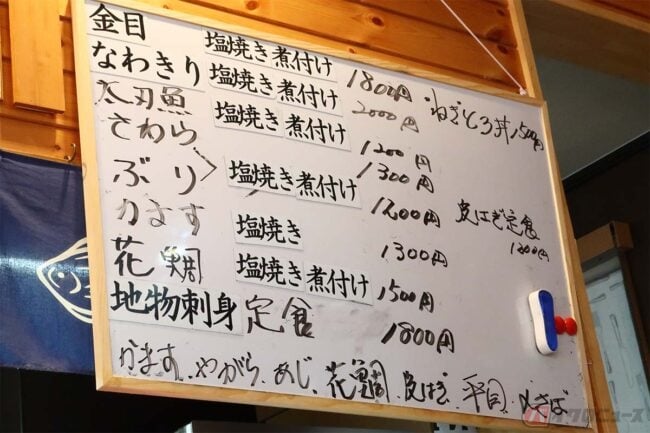 金目 塩焼き 煮付け 1800円
なわきり 塩焼き 煮付け 2000円
太刀魚 塩焼き 煮付け 1200円
さわら 1300円
ぶり 塩焼き 煮付け 1200円
かます 塩焼き 1300円
花鯛 塩焼き 煮付け 1500円
地物刺身定食 1800円
かます、やがら、あじ、花鯛、皮はぎ、平目、〆さば
・ねぎとろ丼 1500円
皮はぎ定食
1200円
オウクロニュース